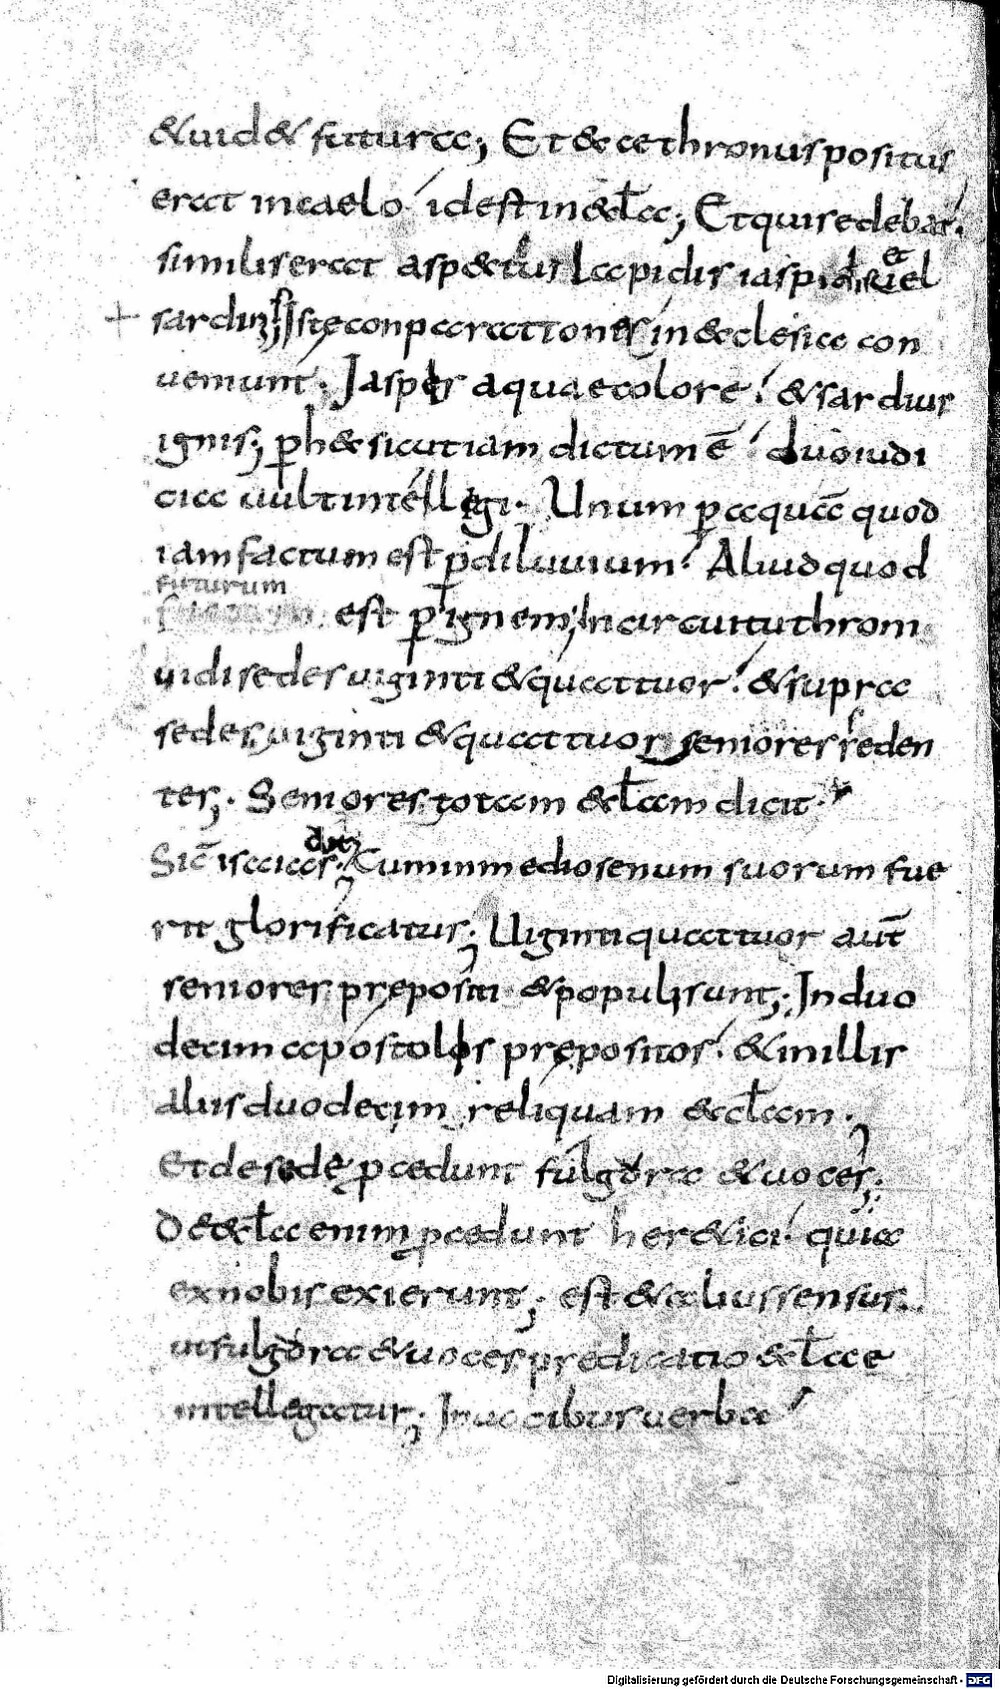 &uid& futura; Et ecce thronus positus
erat in caelo id est in eccla; Et qui sedebat.
similis erat aspectus lapidis iaspidis et
sardini; Iste conparationes in ecclesia con
ueniunt. Iaspis aquae colore. & sardius
ignis; p h& sicut iam dictum ē duo iudi
cia uult intellegi. Unum p aquā quod
iam factum est p diluuium. Aliud quod
futurum
est p ignem; In circuitu throni
uidi sedes uiginti & quattuor. & supra
sedes uiginti & quattuor seniores seden
tes;. Seniores totam ecclam dicit.
Sic̄ isaias dicit; Cum in medio senum suorum fue
rit glorificatus; Uiginti quattuor aut̄
seniores prepositi & populi sunt;. In duo
decim apostolos prępositos. & in illis
aliis duodecim reliquam ecclam.;
Et de sede pcedunt fulgora & uoces;
De eccla enim pcedunt her&ici. quia
ex nobis exierunt; est & alius sensus.
ut fulgora & uoces predicatio ecclae
intellegatur; In uocibus uerba
Digitalisierung gefördert durch die Deutsche Forschungsgemeinschaft - DFG